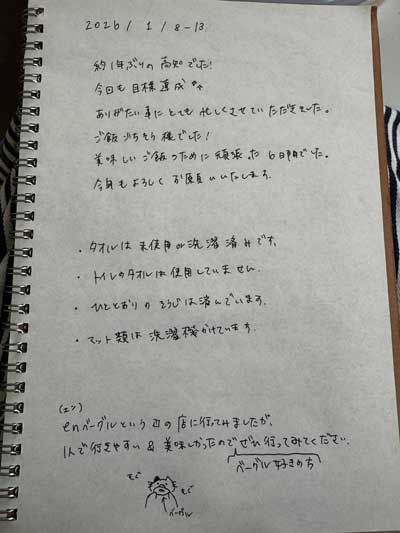 2026 / 1 / 8-13
約1年ぶりの高知でした!
今回も目標達成
ありがたい事にとても忙しくさせていただきました。
ご飯ごちそう様でした!
美味しいご飯のために頑張った6日間でした。
今年もよろしくお願いいたします。
・タオルは未使用or洗濯済みです。
・トイレのタオルは使用していません。
・ひととおりのそうじは済んでいます。
・マット類は洗濯機かけています。
(エン)
enベーグルという の店に行ってみましたが、
1人で行きやすい & 美味しかったのでぜひ行ってみてください。
ベーグル好きの方
もぐ
もぐ
ベーグル